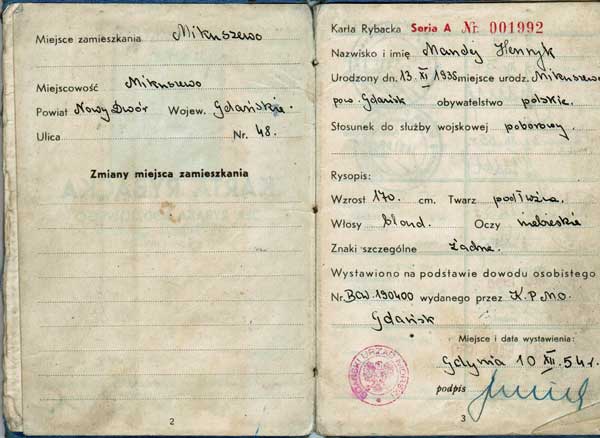 Miejsce zamieszkania Mikuszewo
Miejscowość Mikuszewo
Powiat Nowy Dwór Wojew. Gdańskie.
Ulica Nr. 48.
Zmiany miejsca zamieszkania
2
Karta Rybacka Seria A Nr 001992
Nazwisko i imię Mandej Henryk
Urodzony dn. 13. XI 1935 miejsce urodz. Mikuszewo
pow. Gdańsk obywatelstwo polskie.
Stosunek do służby wojskowej poborowy.
Rysopis:
Wzrost 170 cm. Twarz podłużna
Włosy blond. Oczy niebieskie
Znaki szczególne żadne.
Wystawiono na podstawie dowodu osobistego
Nr. BGW. 190400 wydanego przez K.P.M.O.
Gdańsk
Miejsce i data wystawienia:
Gdynia 10 XII. 54 r.
podpis
3